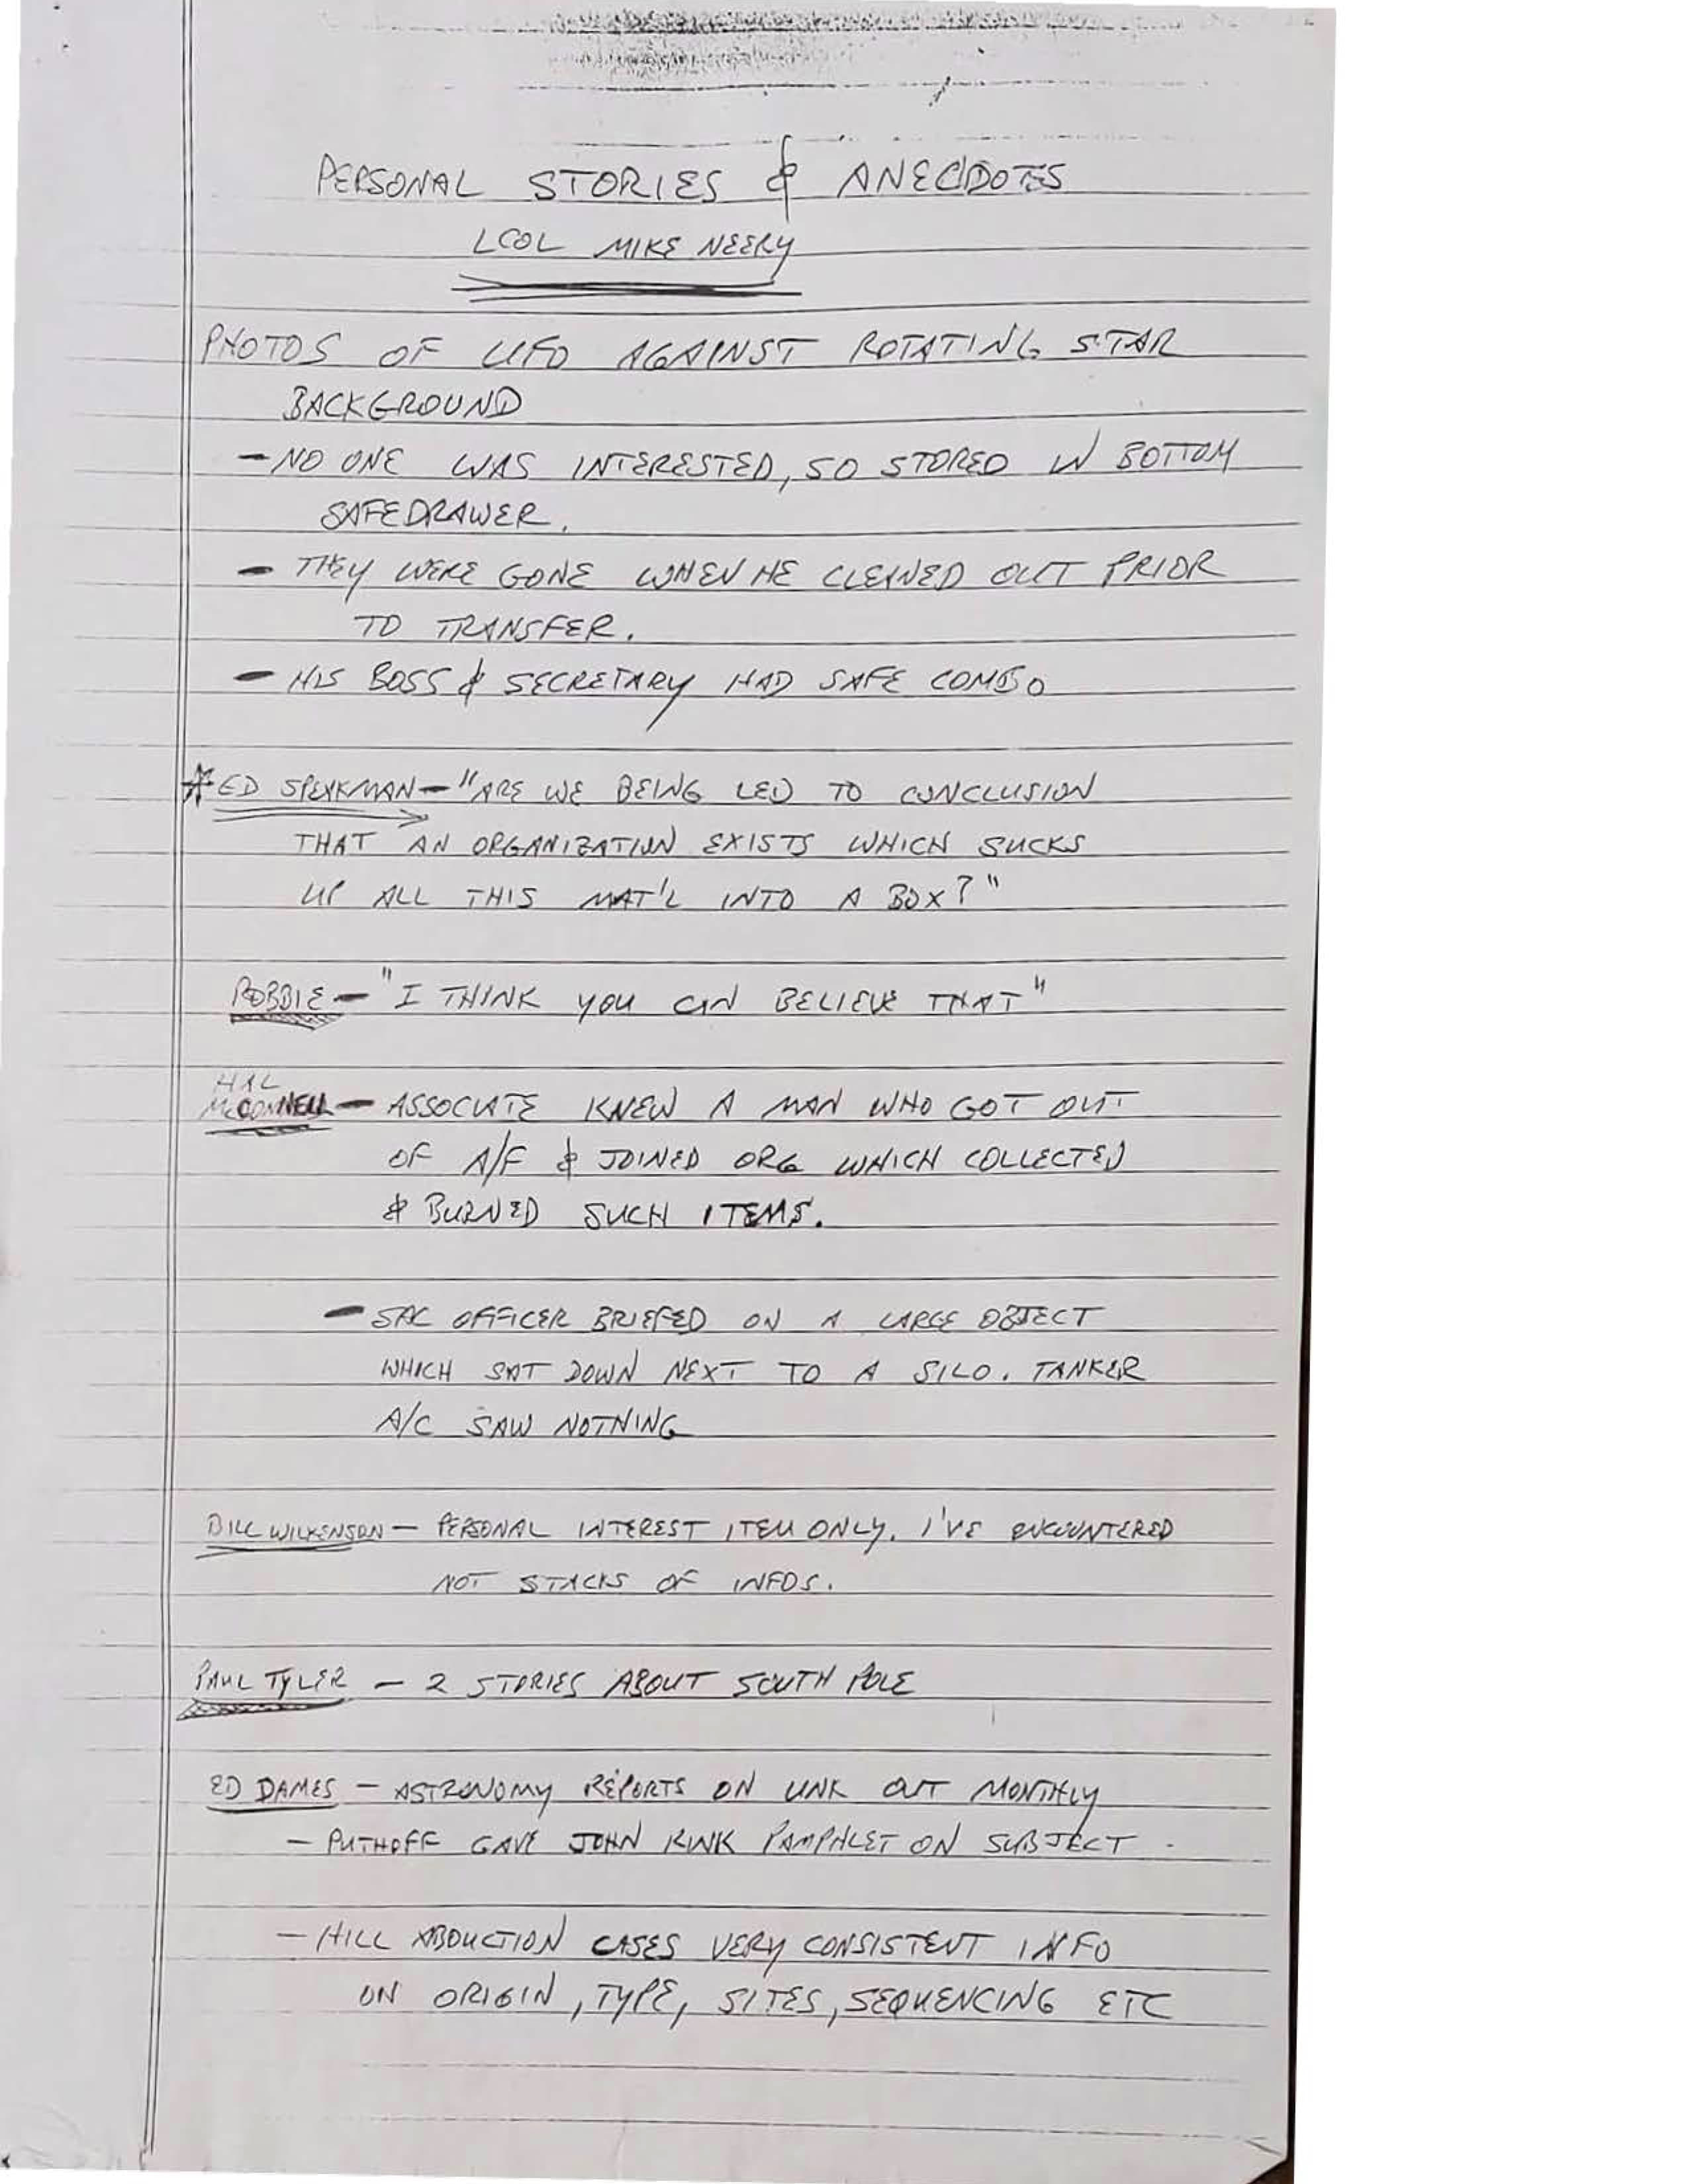 PERSONAL STORIES & ANECDOTES
LCOL MIKE NEERY
PHOTOS OF UFO AGAINST ROTATING STAR
BACKGROUND
- NO ONE WAS INTERESTED, SO STORED IN BOTTOM
SAFE DRAWER.
- THEY WERE GONE WHEN HE CLEANED OUT PRIOR
TO TRANSFER.
- HIS BOSS & SECRETARY HAD SAFE COMBO
* ED SPEAKMAN - "ARE WE BEING LED TO CONCLUSION
THAT AN ORGANIZATION EXISTS WHICH SUCKS
UP ALL THIS MAT'L INTO A BOX?"
ROBBIE - "I THINK YOU CAN BELIEVE THAT"
HAL
McCONNELL - ASSOCIATE KNEW A MAN WHO GOT OUT
OF A/F & JOINED ORG WHICH COLLECTED
& BURNED SUCH ITEMS.
- SAC OFFICER BRIEFED ON A LARGE OBJECT
WHICH SAT DOWN NEXT TO A SILO. TANKER
A/C SAW NOTHING
BILL WILKENSON - PERSONAL INTEREST ITEM ONLY. I'VE ENCOUNTERED
NOT STACKS OF INFOS.
PAUL TYLER - 2 STORIES ABOUT SOUTH POLE
ED DAMES - ASTRONOMY REPORTS ON UNK OUT MONTHLY
- PUTHOFF GAVE JOHN KINK PAMPHLET ON SUBJECT
- HILL ABDUCTION CASES VERY CONSISTENT INFO
ON ORIGIN, TYPE, SITES, SEQUENCING ETC